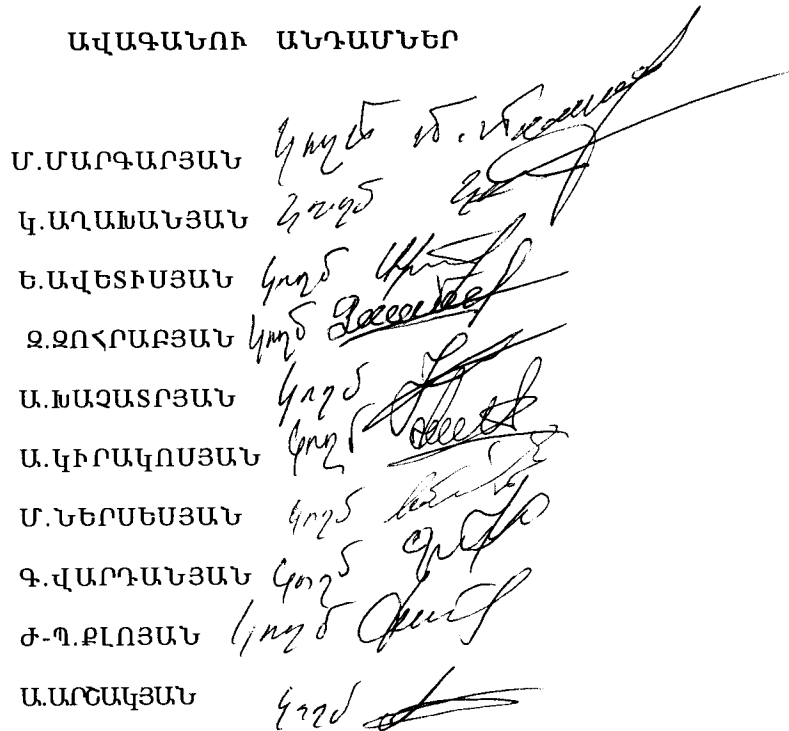 ԱՎԱԳԱՆՈՒ ԱՆԴԱՄՆԵՐ
Մ.ՄԱՐԳԱՐՅԱՆ կողմ
Կ.ԱՂԱԽԱՆՅԱՆ կողմ
Ե.ԱՎԵՏԻՍՅԱՆ կողմ
Զ.ԶՈՀՐԱԲՅԱՆ կողմ
Ա.ԽԱՉԱՏՐՅԱՆ կողմ
Ա.ԿԻՐԱԿՈՍՅԱՆ կողմ
Մ.ՆԵՐՍԵՍՅԱՆ կողմ
Գ.ՎԱՐԴԱՆՅԱՆ կողմ
Ժ-Պ.ՔԼՈՅԱՆ կողմ
Ա.ԱՐՇԱԿՅԱՆ կողմ